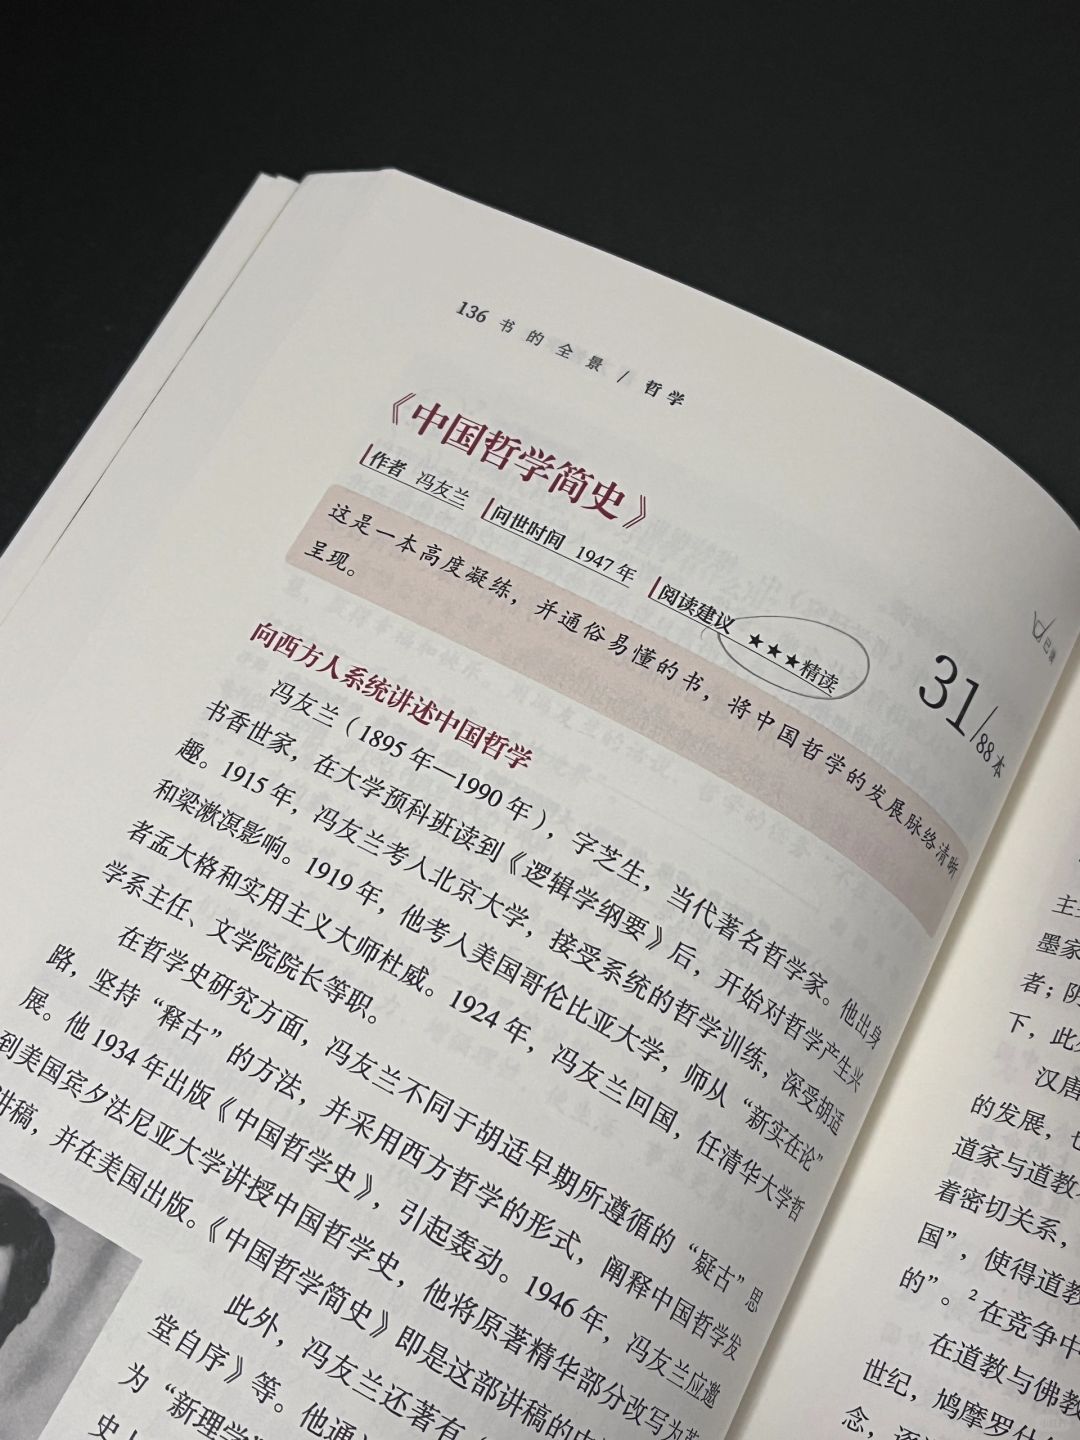 136 书的全景 / 哲学
《中国哲学简史》
作者 冯友兰 问世时间 1947年 阅读建议 ★★★精读
31/88本
已读
这是一本高度凝练，并通俗易懂的书，将中国哲学的发展脉络清晰
呈现。
向西方人系统讲述中国哲学
冯友兰（1895年—1990年），字芝生，当代著名哲学家。他出身
书香世家，在大学预科班读到《逻辑学纲要》后，开始对哲学产生兴
趣。1915年，冯友兰考入北京大学，接受系统的哲学训练，深受胡适
和梁漱溟影响。1919年，他考入美国哥伦比亚大学，师从“新实在论”
者孟大格和实用主义大师杜威。1924年，冯友兰回国，任清华大学哲
学系主任、文学院院长等职。
在哲学史研究方面，冯友兰不同于胡适早期所遵循的“疑古”思
路，坚持“释古”的方法，并采用西方哲学的形式，阐释中国哲学发
展。他1934年出版《中国哲学史》，引起轰动。1946年，冯友兰应邀
到美国宾夕法尼亚大学讲授中国哲学史，他将原著精华部分改写为英
讲稿，并在美国出版。《中国哲学简史》即是这部讲稿的中
此外，冯友兰还著有
堂自序》等。他通
为“新理学”
史上
主
墨家
者；阴
下，此
汉唐
的发展，
道家与道教
着密切关系，
国”，使得道教
的”。2在竞争中
在道教与佛教
世纪，鸠摩罗什
念，逐